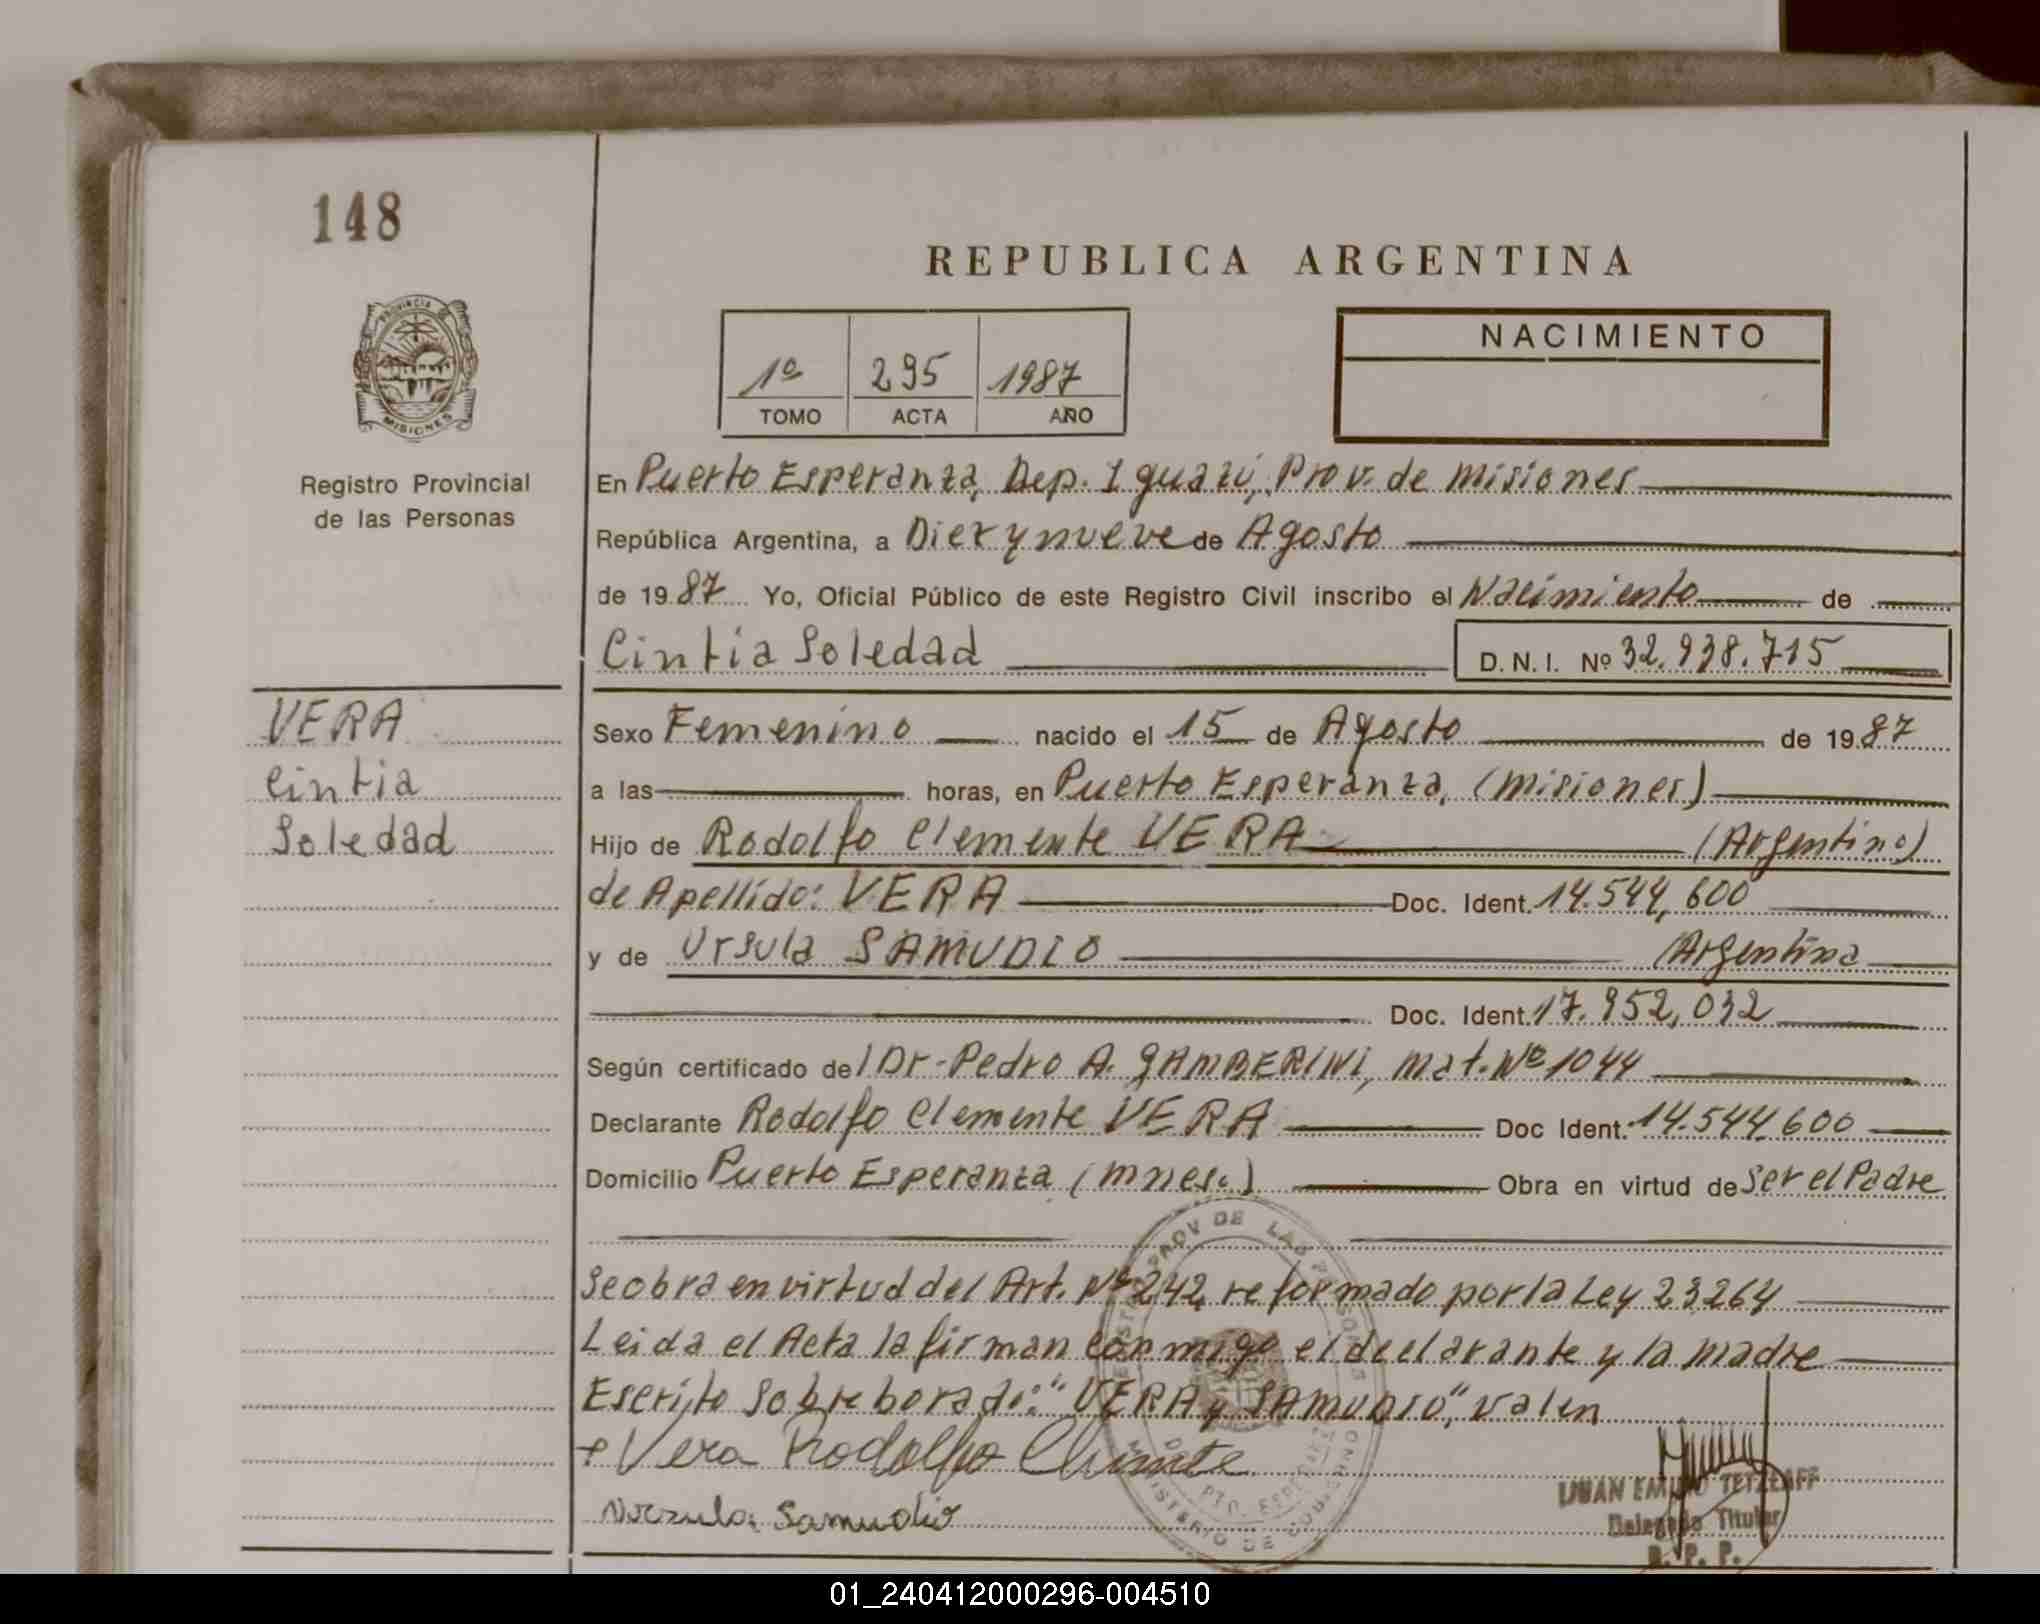 148
REPUBLICA ARGENTINA
PROVINCIA DE
MISIONES
NACIMIENTO
1º 295 1987
TOMO ACTA AÑO
Registro Provincial
de las Personas
En Puerto Esperanza, Dep. Iguazú, Prov. de Misiones
República Argentina, a Diez y nueve de Agosto
de 1987 Yo, Oficial Público de este Registro Civil inscribo el Nacimiento de
Cintia Soledad D.N.I. Nº 32.938.715
VERA
Cintia
Soledad
Sexo Femenino nacido el 15 de Agosto de 1987
a las horas, en Puerto Esperanza, (Misiones)
Hijo de Rodolfo Clemente VERA (Argentino)
de Apellido: VERA Doc. Ident. 14.544,600
y de Ursula SAMUDIO (Argentina
Doc. Ident. 17.952,032
Según certificado del Dr. Pedro A. GAMBERINI, Mat. Nº 1044
Declarante Rodolfo Clemente VERA Doc Ident. 14.544.600
Domicilio Puerto Esperanza (Mnes.) Obra en virtud de Ser el Padre
Se obra en virtud del Art. Nº 242, reformado por la Ley 23264
Leida el Acta la firman conmigo el declarante y la madre
Escrito sobre borado: "VERA y SAMUDIO", valen
Vera Rodolfo Clemente
Samudio
PROV DE LAS PERSONAS
MINISTERIO DE GOBIERNO
PTO. ESPERANZA
EMILIO TETZLAFF
Delegado Titular
R. P. P.
01_240412000296-004510